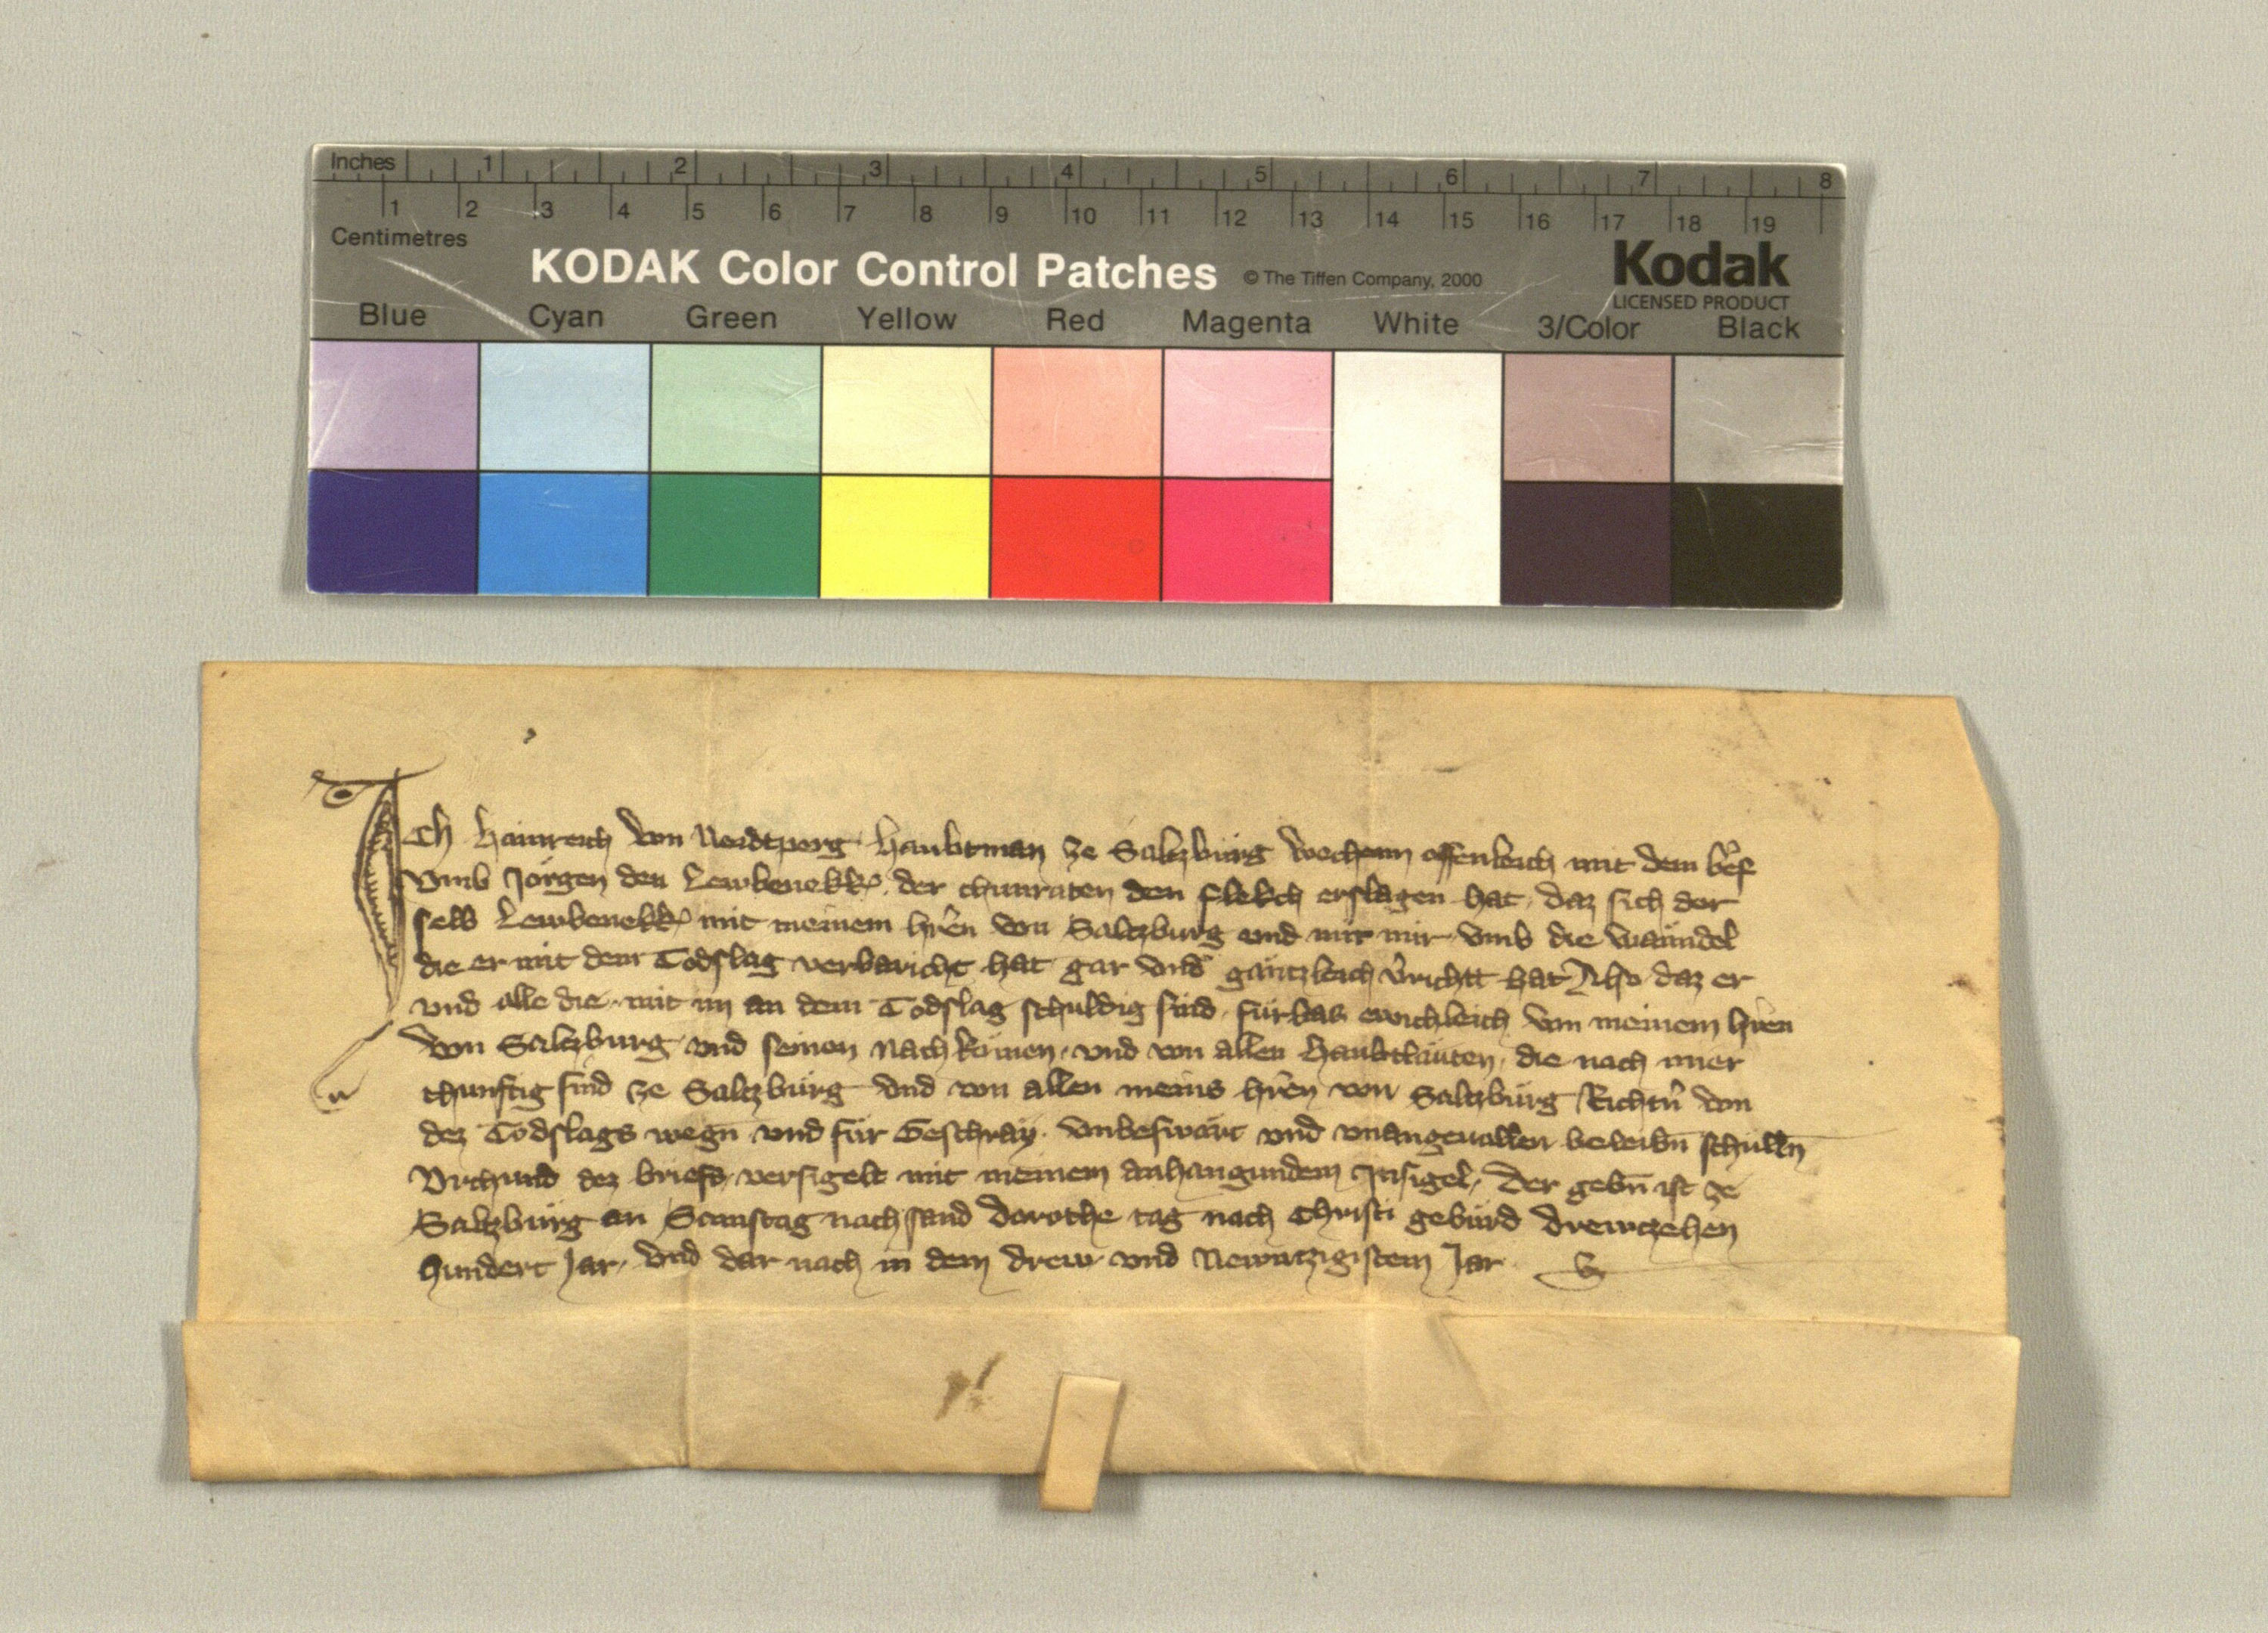 Inches 1 2 3 4 5 6 7 8
1 2 3 4 5 6 7 8 9 10 11 12 13 14 15 16 17 18 19
Centimetres
KODAK Color Control Patches © The Tiffen Company, 2000 Kodak
LICENSED PRODUCT
Blue Cyan Green Yellow Red Magenta White 3/Color Black
Ich Hainreich von Nordtperg haubtman ze Saltzburg vechenn offenleich mit dem brief
vmb Jörgen den Lewbenekker der chunraten den flekch erslagen hat, daz sich der
selb Lewbenekker mit meinem hren von Saltzburg und mit mir vmb die wanndel
die er mit dem Todslag verbaricht hat gar vnd gäntzleich vrichtt hat Also daz er
vnd alle die mit im an dem Todslag schuldig sind fürbas ewichleich von meinem hren
von Saltzburg vnd seinen nachkomen vnd von allen haubtläuten, die nach mier
chunftig sind ze Saltzburg vnd von allen meins hren von Saltzburg Richtn von
dez Todslags wegn vnd für Geschray vnbeswärt vnd vnangeuallen beleibn schulln
Vrchund dez briefs versigelt mit meinem anhangundem Insigel, Der gebn ist ze
Saltzburg an Samstag nach sand dorothe tag nach Christi gebürd drewtzehen
hundert Jar, vnd dar nach in dem drew vnd Newntzigistem Jar